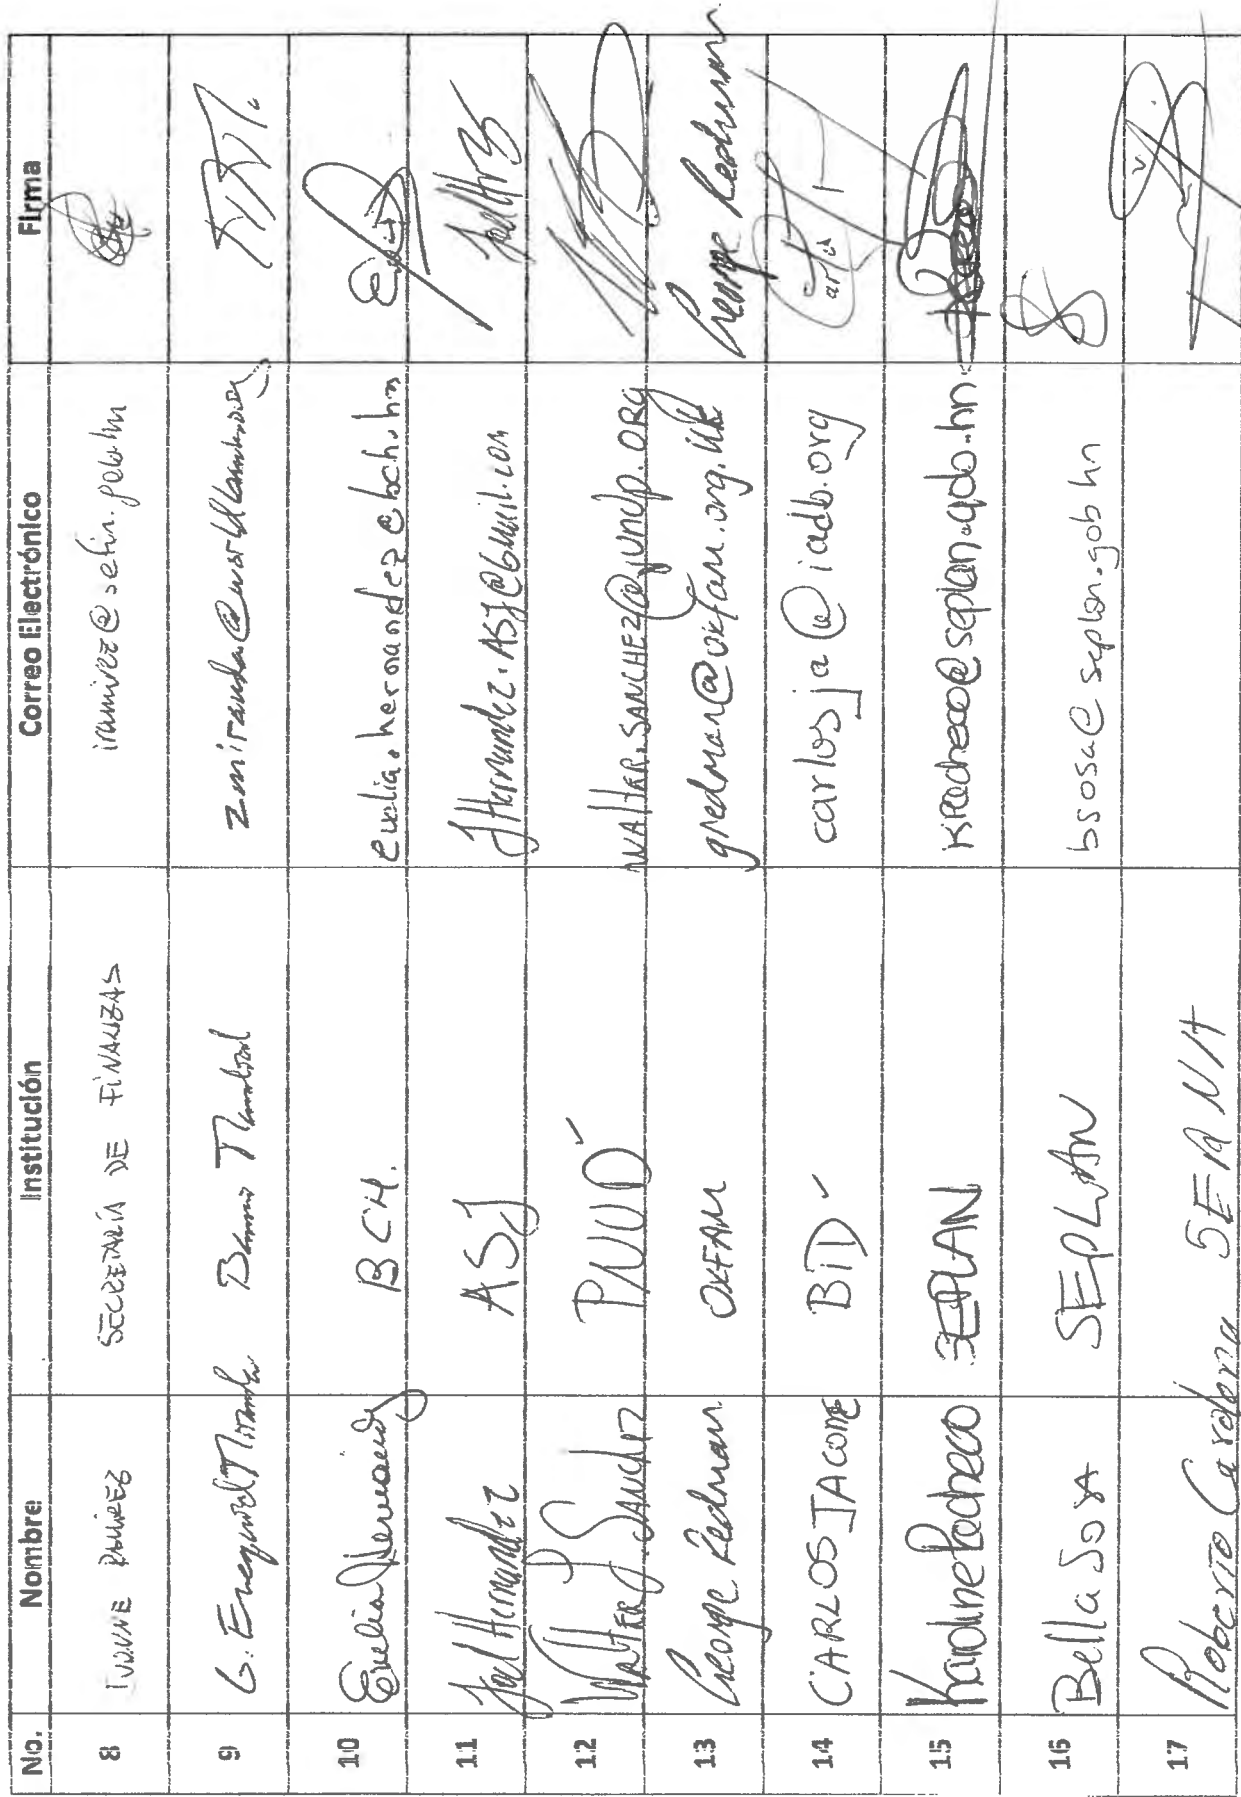 No. Nombre Institución Correo Electrónico Firma
8 IVONNE RAMIREZ SECRETARÍA DE FINANZAS iramirez@sefin.gob.hn
9 G. Ezequiel Miranda Banco Mundial
10 Evelia Hernandez BCH. evelia.hernandez@bch.hn
11 Joel Hernandez ASJ JHernandez.ASJ@Gmail.com
12 WALTER J SANCHEZ PNUD WALTER.SANCHEZ@UNDP.ORG
13 George Redman OXFAM gredman@oxfam.org.uk George Redman
14 CARLOS JACOME BID carlosja@iadb.org
15 Karoline Pacheco SEPLAN KPacheco@seplan.gob.hn
16 Bella Sosa SEPLAN bsosa@seplan.gob hn
17 Roberto Cardona SERNA